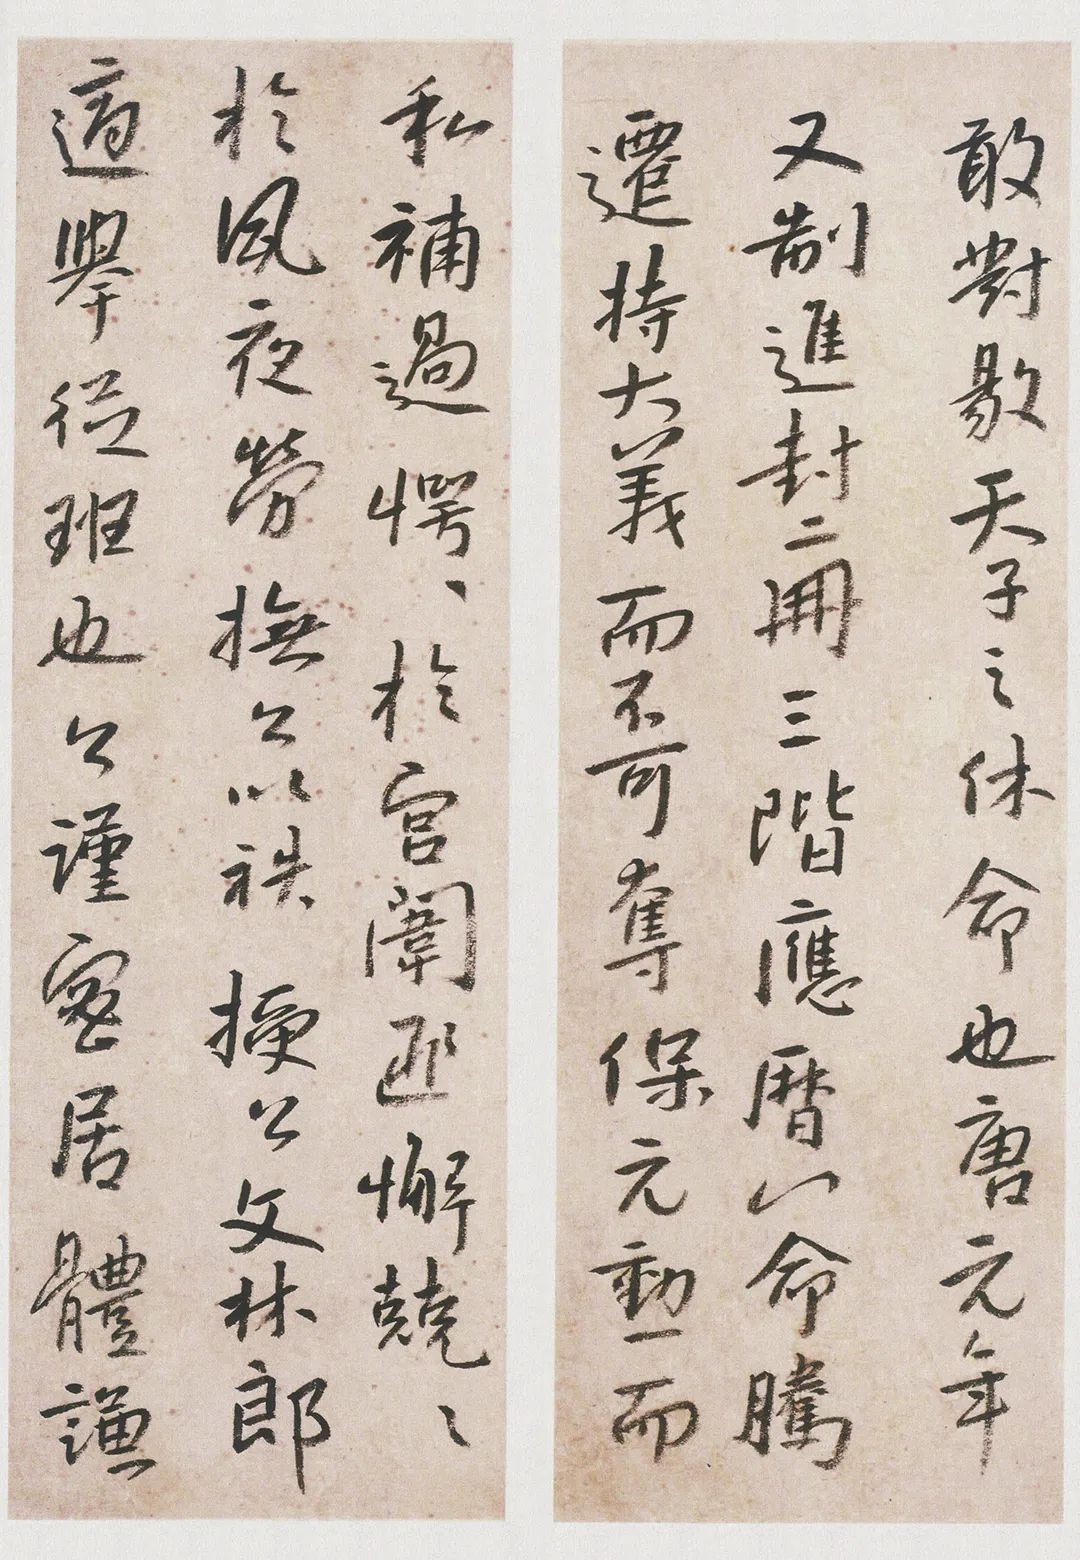 敢對敭天子之休命也唐元年
又制進封二冊三階應曆八命騰
遷持大義而不可奪保元勳而
私補過愕〻於宮闈匪懈兢〻
於夙夜勞撫公以秩授公文林郎
適舉從班也公謹密居體謙